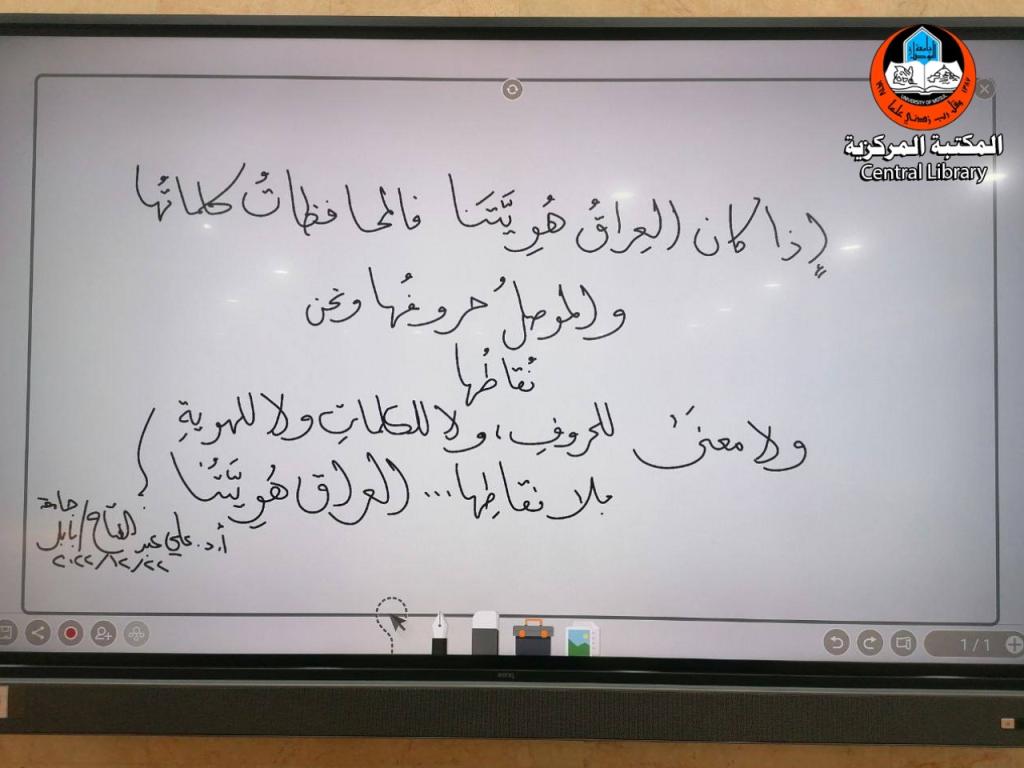 جامعة الموصل
UNIVERSITY OF MOSUL
وقل رب زدني علما
١٩٦٧
١٣٨٧
المكتبة المركزية
Central Library
إذا كان العِراقُ هُوِيَّتَنا فالمحافظاتُ كلماتُها
والموصلُ حروفُها ونحن
نُقاطُها
ولا معنىً للحروفِ، ولا للكلماتِ ولا للهويةِ
بلا نقاطِها... العراق هُوِيَّتُنا !
أ.د. علي عبد الفتاح / جامعة بابل
٢٠٢٢/١٢/٢٢
1/1
BenQ